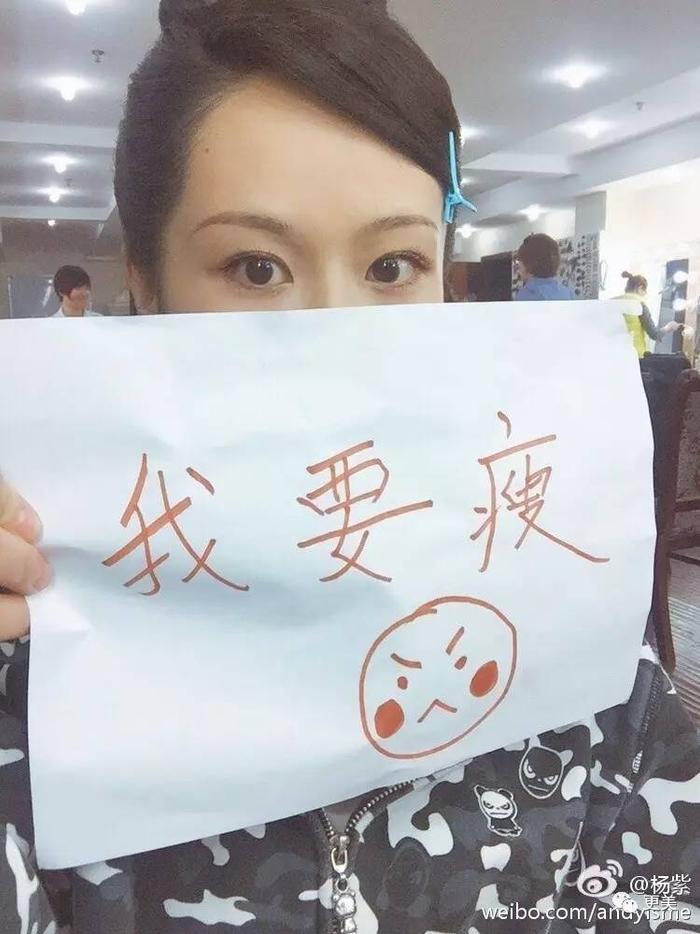 我要瘦
@杨紫
更美
weibo.com/andyisme